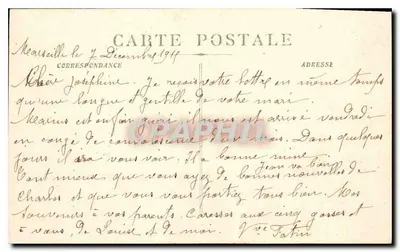 CARTE POSTALE
Marseille le 7 Décembre
CORRESPONDANCE
ADRESSE
Chère Joséphine. Je reçois votre lettre en même temps
qu'une longue et gentille de votre mari.
Marius est enfin guéri, il nous est arrivé vendredi
en congé de convalescence mois. Dans quelques
jours il ira vous voir. Il a bonne mine.
Jean va bien
Tant mieux que vous ayez de bonnes nouvelles de
Charles et que vous vous portiez tous bien. Mes
souvenirs à vos parents. Caresses aux cinq gosses et
à vous, de Louise et de moi. Vve